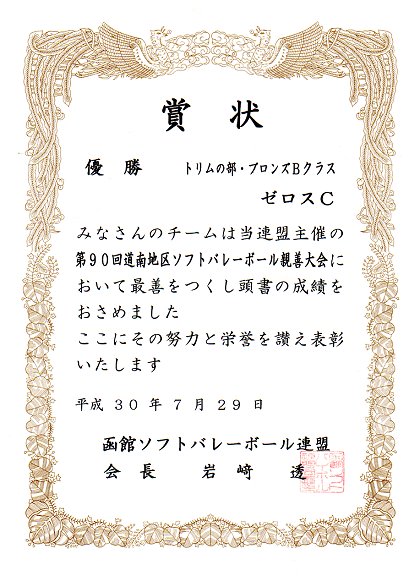 賞状
優勝 トリムの部・ブロンズBクラス
ゼロスC
みなさんのチームは当連盟主催の
第90回道南地区ソフトバレーボール親善大会に
おいて最善をつくし頭書の成績を
おさめました
ここにその努力と栄誉を讃え表彰
いたします
平成30年7月29日
函館ソフトバレーボール連盟
会長 岩﨑 透